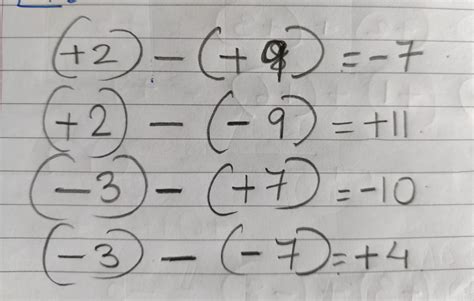 (+2) - (+9) = -7
(+2) - (-9) = +11
(-3) - (+7) = -10
(-3) - (-7) = +4